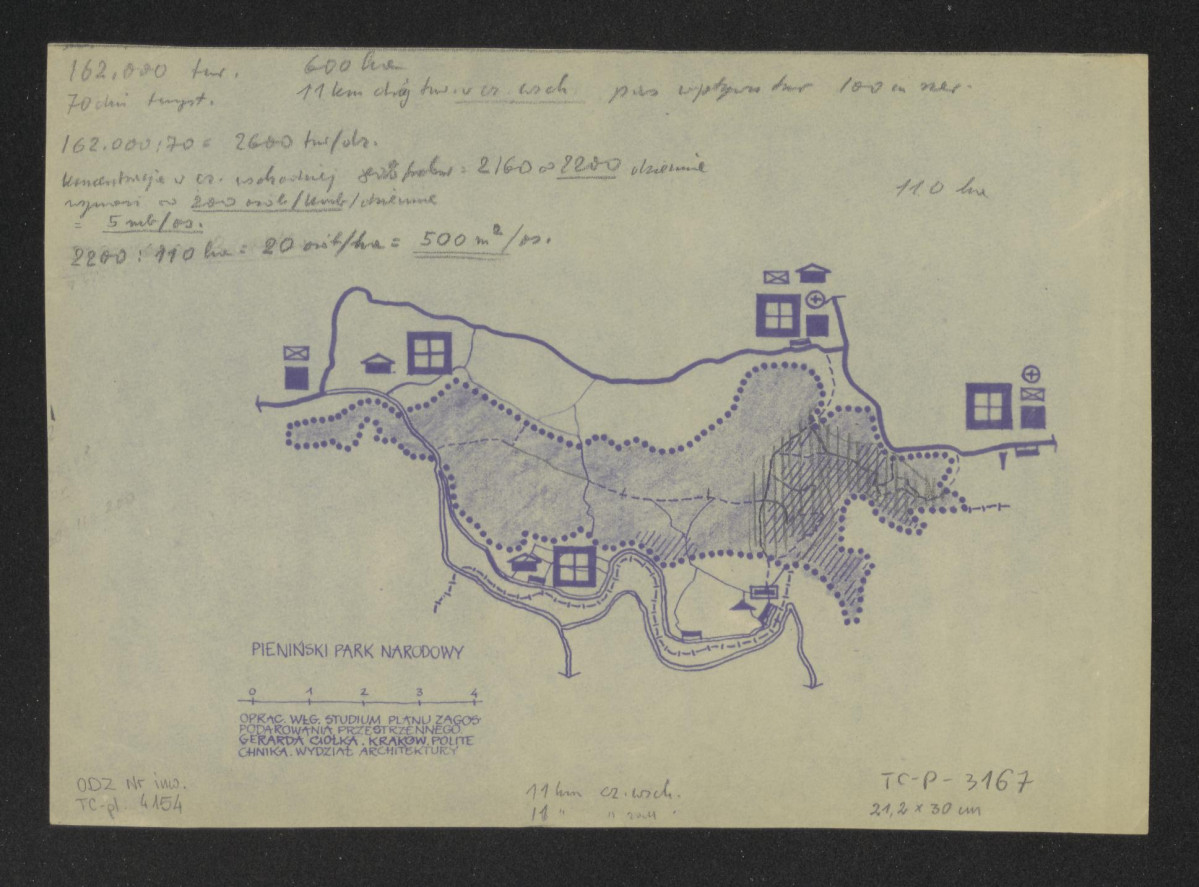 162.000 tur. 600 ha
70 dni turyst. 11 km dróg tur. w cz. wsch. pas wpływu tur 100 m szer.
162.000 : 70 = 2600 tur/dz.
Koncentracja w cz. wschodniej = 2160 ∾ 2200 dziennie
wynosi ∾ 200 osób/kmb/dziennie
110 ha
= 5 mb/os.
2200 : 110 ha = 20 osób/ha = 500 m²/os.
PIENIŃSKI PARK NARODOWY
0 1 2 3 4
OPRAC. WŁG. STUDIUM PLANU ZAGOS
PODAROWANIA PRZESTRZENNEGO.
GERARDA CIOŁKA. KRAKÓW. POLITE
CHNIKA. WYDZIAŁ ARCHITEKTURY
ODZ Nr inw.
TC-pl. 4154
11 km cz. wsch.
11 " "
TC-P-3167
21,2 x 30 cm